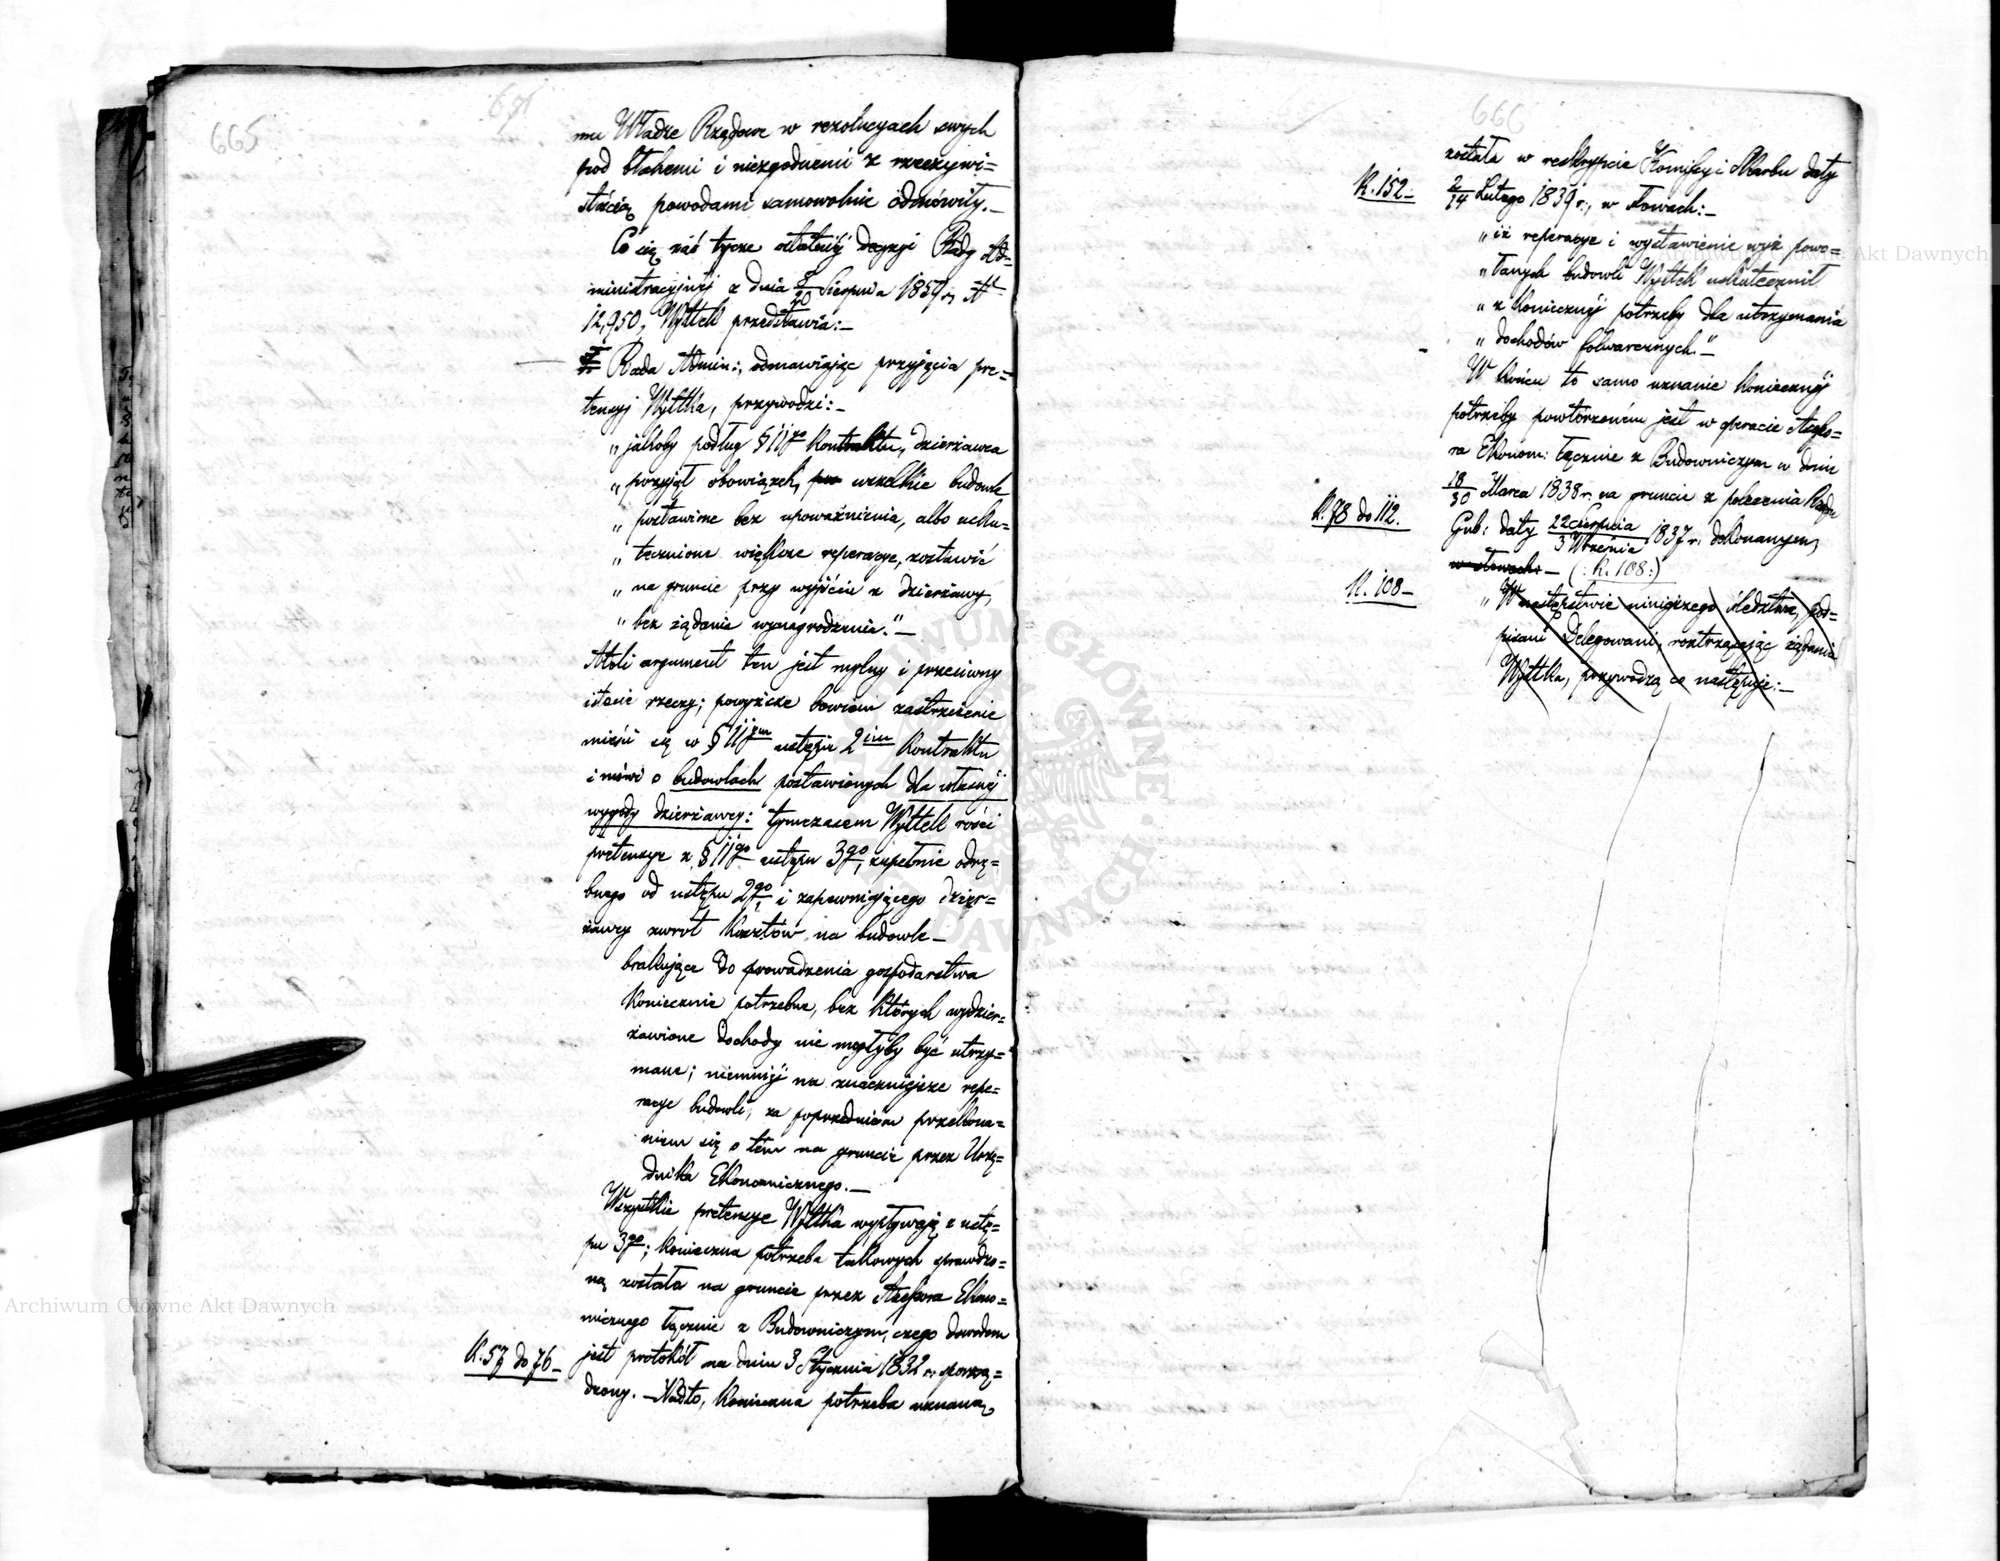 665
671
mu Władze Rządowe w rezolucyach swych
pod błahemi i niezgodnemi z rzeczywi=
stością powodami samowolnie odmówiły.—
Co się zaś tycze ostatniéj decyzyi Rady Ad=
ministracyjnéj z dnia 8/20 Sierpnia 1859 r. N
12,950, Wÿttek przedstawia:—
Rada Admin:, odmawiając przyjęcia pre=
tensyj Wÿttka, przywodzi:—
„jakoby podług § 11go Kontraktu, dzierżawca
„przyjął obowiązek, wszelkie budowle
„postawione bez upoważnienia, albo usku=
„tecznione większe reperacye, zostawić
„na gruncie przy wyjściu z dzierżawy,
„bez żądania wynagrodzenia."—
Atoli argument ten jest mylny i przeciwny
istocie rzeczy; powyższe bowiem zastrzeżenie
mieści się w § 11ym ustępie 2im Kontraktu
i mówi o budowlach postawionych dla własnéj
wygody dzierżawcy: tymczasem Wÿttek rości
pretensye z § 11go ustępu 3go, zupełnie odrę=
bnego od ustępu 2go, i zapewniającego dzier=
żawcy zwrot kosztów na budowle—
brakujące do prowadzenia gospodarstwa
koniecznie potrzebne, bez których wydzier=
żawione dochody nie mogłyby być utrzy=
mane; niemniéj na znaczniejsze repe=
racye budowli, za poprzedniém przekona=
niem się o tém na gruncie przez Urzę=
dnika Ekonomicznego.—
Wszystkie pretensye Wÿttka wypływają z ustę=
pu 3go; konieczna potrzeba takowych sprawdzo=
ną została na gruncie przez Assessora Ekono=
micznego łącznie z Budowniczym, czego dowodem
K. 57 do 76— jest protokół na dniu 3 Stycznia 1832 r. sporzą=
dzony.—Nadto, konieczna potrzeba uznaną
666
została w reskrypcie Kommissyi Skarbu daty
K. 152— 2/14 Lutego 1839 r., w słowach:—
„iż reperacye i wystawienie wyż powo=
„łanych budowli Wÿttek uskutecznił
„z koniecznéj potrzeby dla utrzymania
„dochodów folwarcznych."—
W końcu to samo uznanie koniecznéj
potrzeby powtórzoném jest w operacie Assesso=
ra Ekonom: łącznie z Budowniczym w dniu
K. 78 do 112. 18/30 Marca 1838 r. na gruncie z polecenia Rządu
Gub: daty 22 Sierpnia/3 Września 1837 r. dokonanym,
w słowach:— (: K. 108:)
K. 108— „W następstwie niniejszego śledztwa, pod=
pisani Delegowani, roztrząsając żądania
Wÿttka, przywodzą co następuje:—
Archiwum Główne Akt Dawnych
Archiwum Główne Akt Dawnych
ARCHIWUM GŁÓWNE AKT DAWNYCH